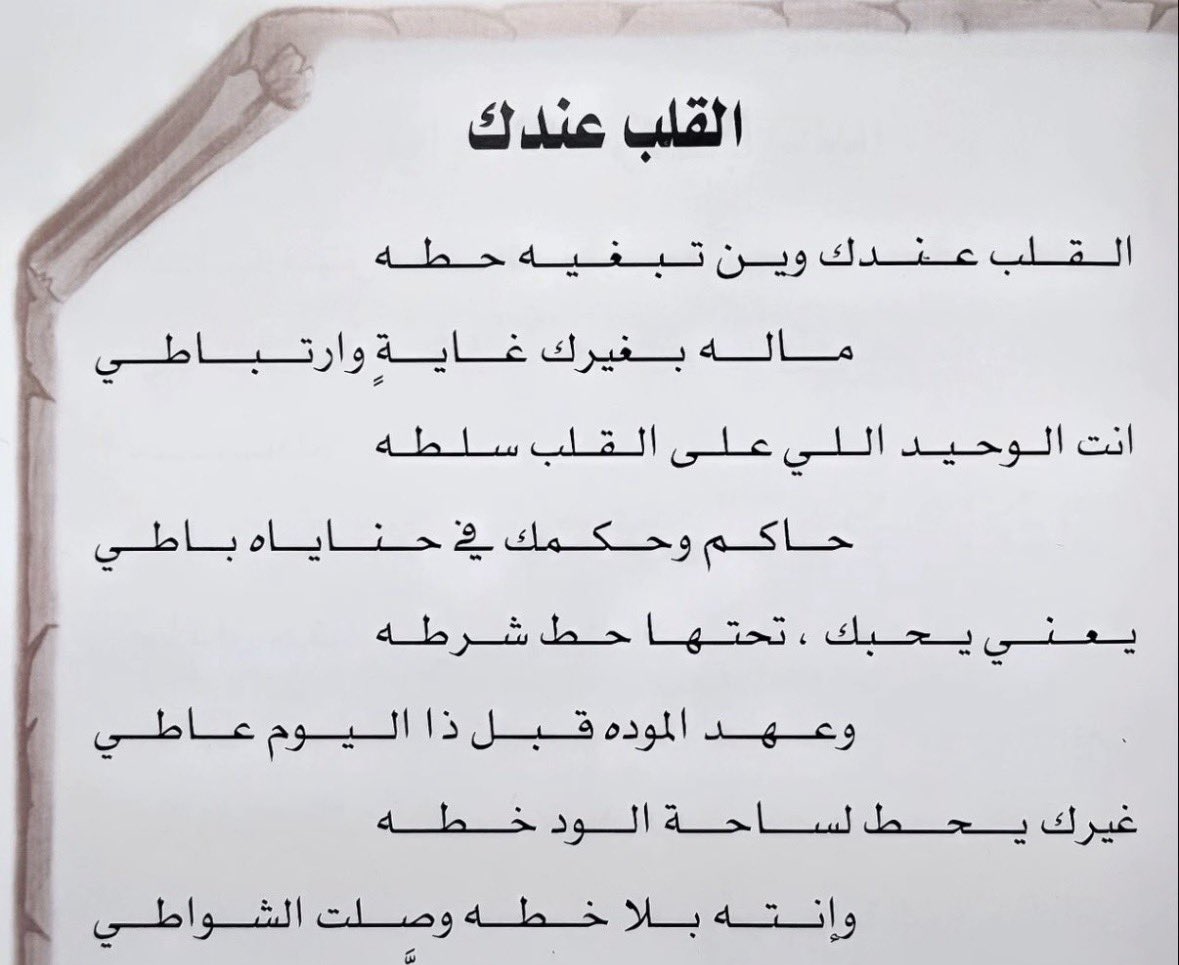 القلب عندك
القلب عندك وين تبغيه حطه
ماله بغيرك غايةٍ وارتباطي
انت الوحيد اللي على القلب سلطه
حاكم وحكمك في حناياه باطي
يعني يحبك ، تحتها حط شرطه
وعهد الموده قبل ذا اليوم عاطي
غيرك يحط لساحة الود خطه
وإنته بلا خطه وصلت الشواطي